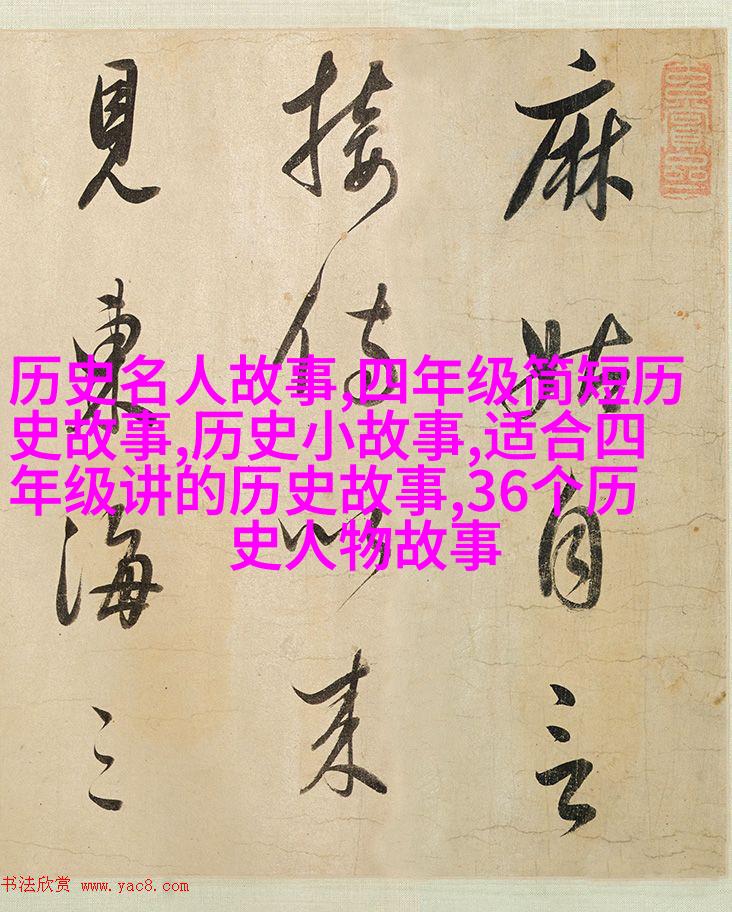 麻姑自言
接侍以来
見東海三
历史名人故事,四年级简短历
史故事,历史小故事,适合四
年级讲的历史故事,36个历
史人物故事
书法欣赏 www.yac8.com